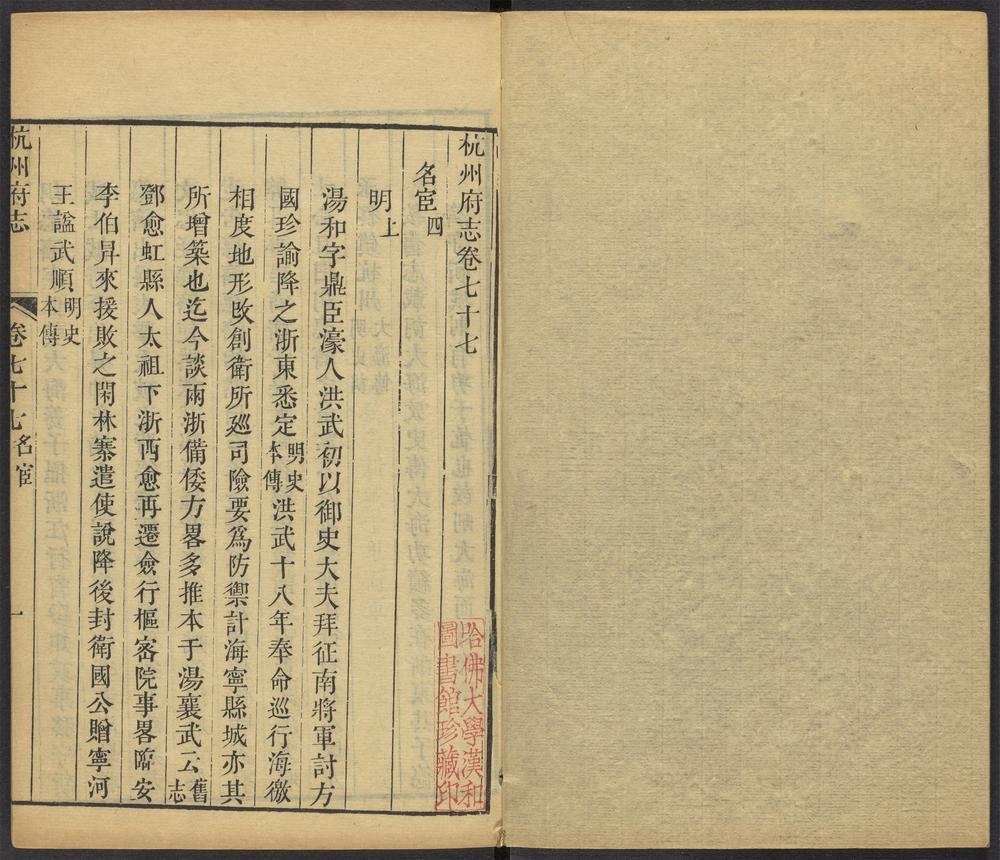 杭州府志卷七十七
名宦四
明上
湯和字鼎臣濠人洪武初以御史大夫拜征南將軍討方
國珍諭降之浙東悉定明史本傳洪武十八年奉命巡行海徼
相度地形改創衛所廵司險要爲防禦計海寧縣城亦其
所增築也迄今談兩浙備倭方畧多推本于湯襄武云舊志
鄧愈虹縣人太祖下浙西愈再遷僉行樞密院事畧臨安
李伯昇來援敗之閑林寨遣使說降後封衛國公贈寧河
王諡武順明史本傳
杭州府志
卷七十七名宦
一
哈佛大學漢和
圖書館珍藏印